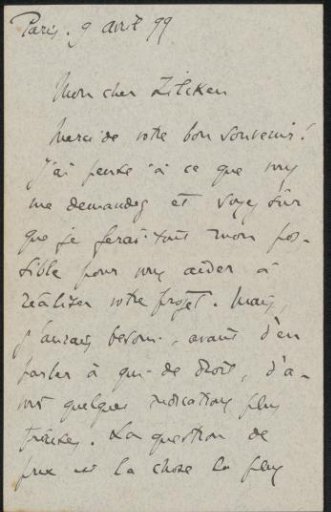 Paris, 9 avril 99
Mon cher Zilcken
Merci de votre bon souvenir!
J'ai pensé à ce que vous
me demandez et soyez sûr
que je ferai tout mon pos-
sible pour vous aider à
réaliser votre projet. Mais,
j'aurais besoin, avant d'en
parler à qui de droit, d'a-
voir quelques indications plus
précises. La question de
prix est la chose la plus